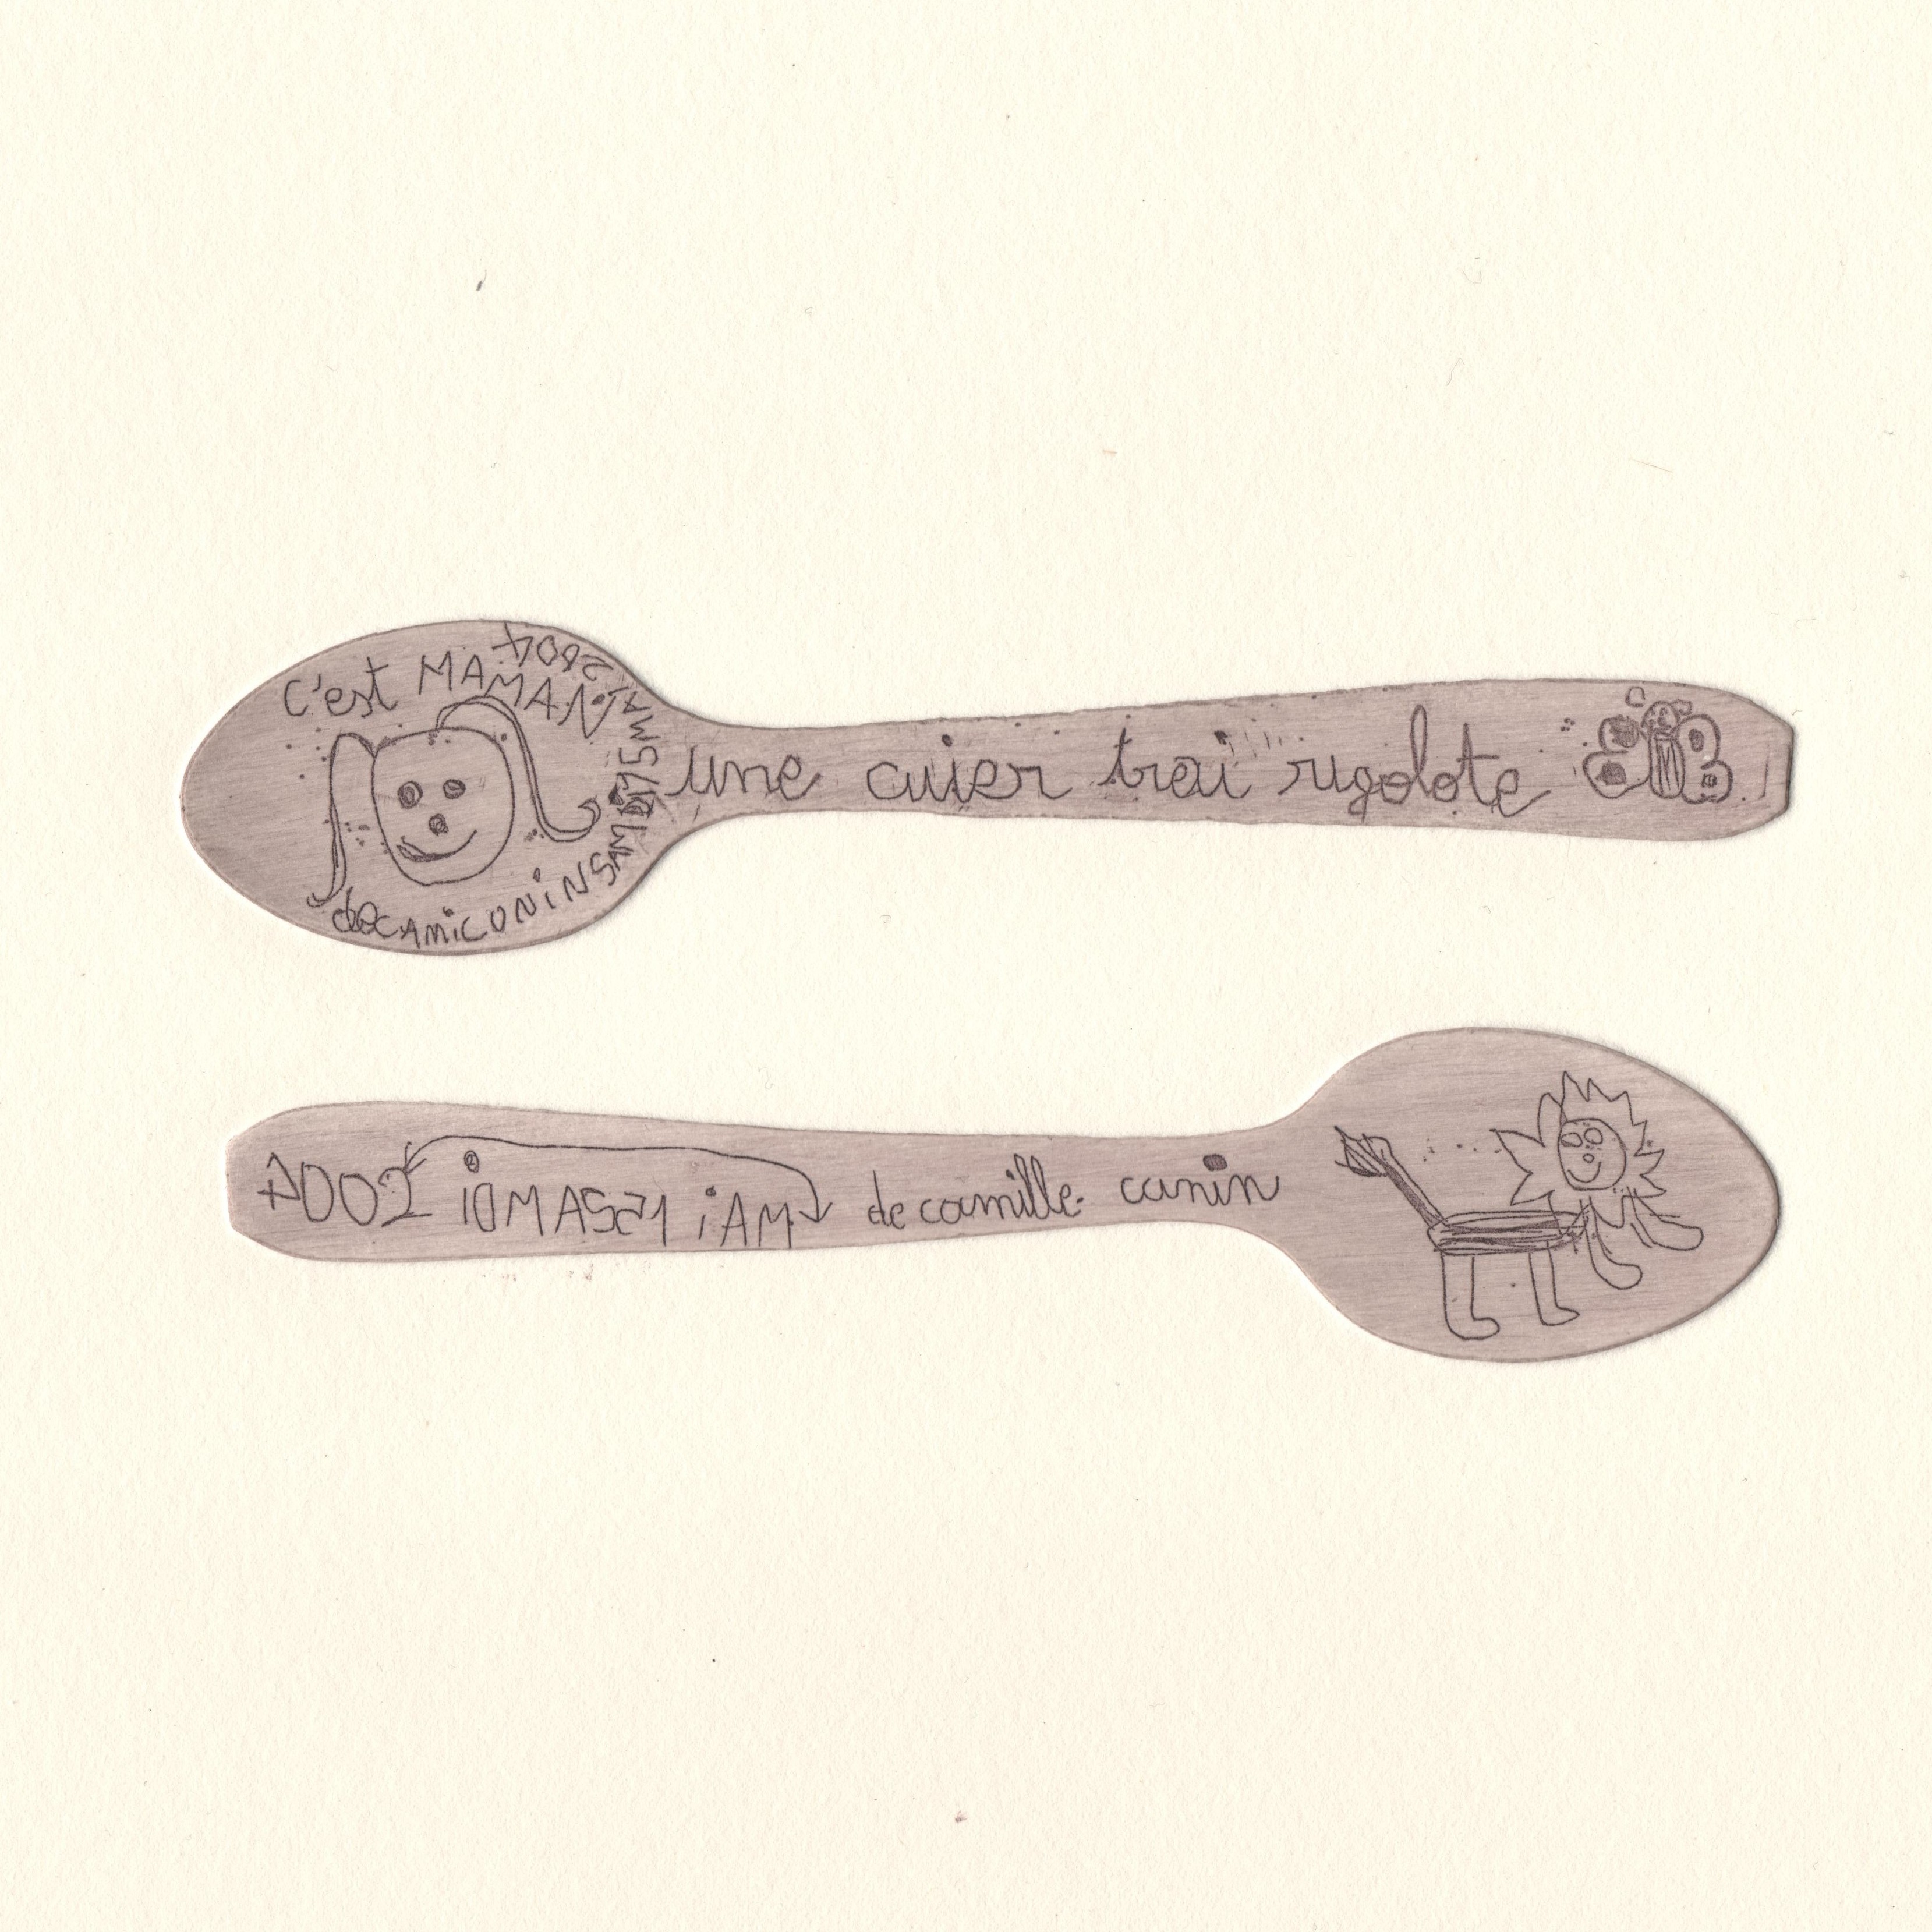 c'est MAMAN
deCAMiCUNiN SAMDi 15 MAi 2004
une cuier trai rigolote
2004 SAMDi 15 MAi
de camille cunin